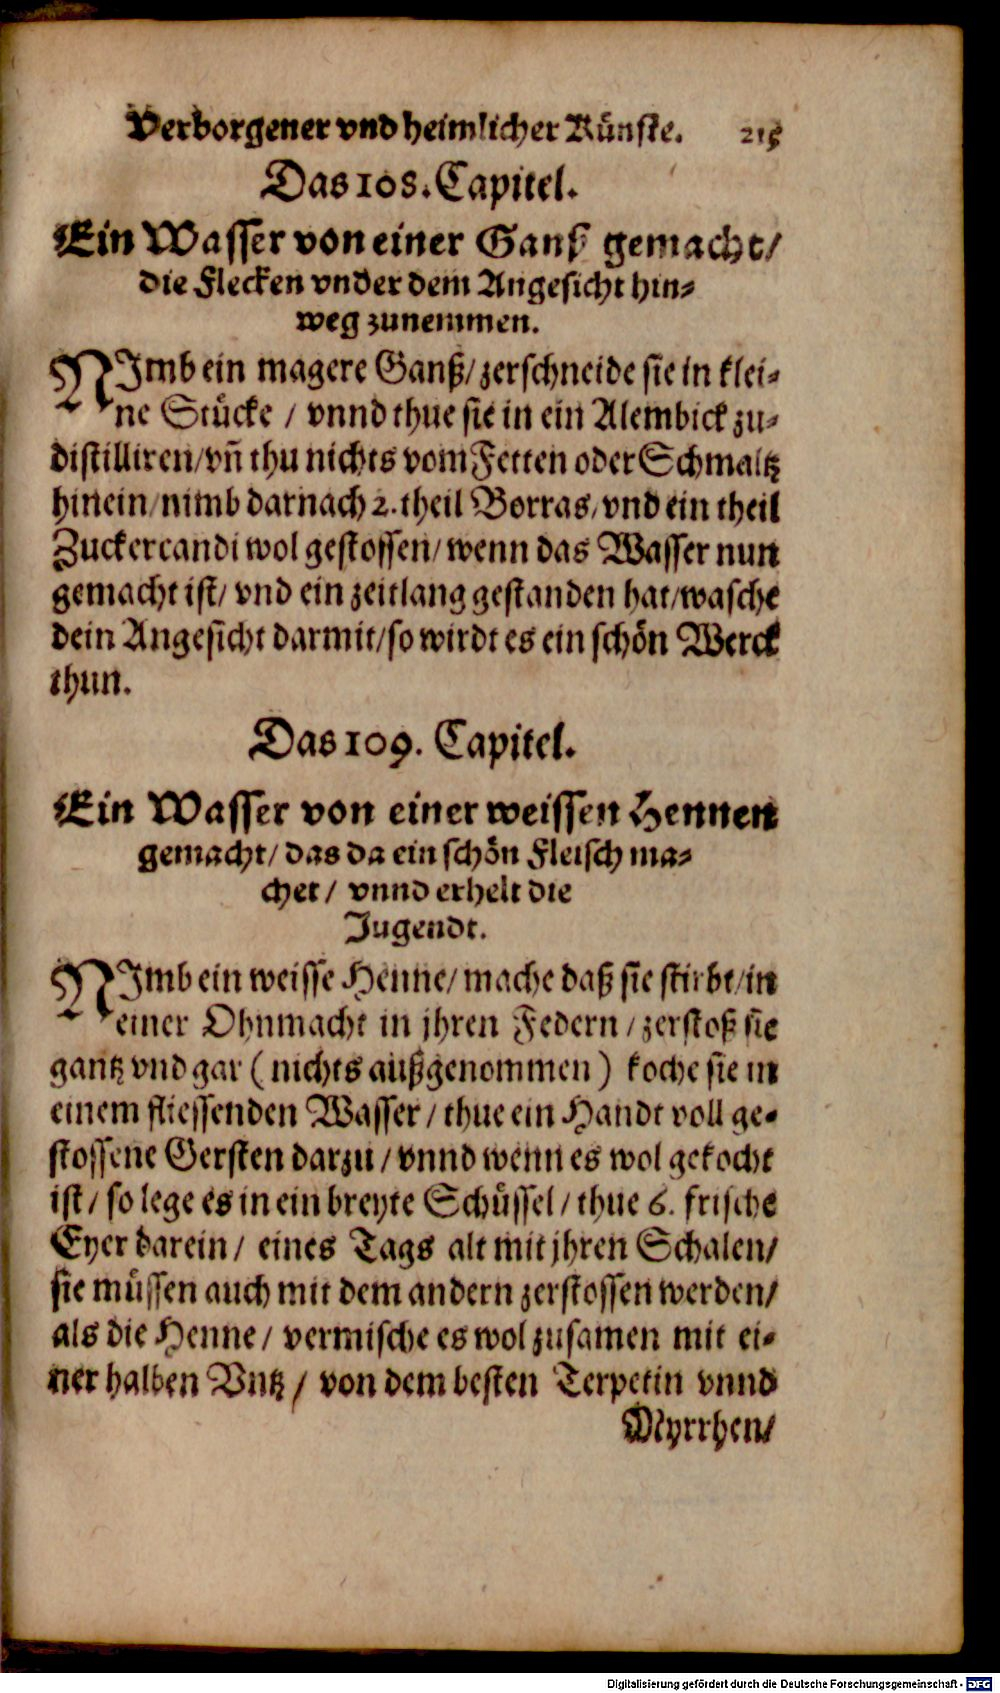 Verborgener vnd heimlicher Künste. 215
Das 108. Capitel.
Ein Wasser von einer Ganß gemacht/
die Flecken vnder dem Angesicht hin-
weg zunemmen.
NImb ein magere Ganß/ zerschneide sie in klei-
ne Stücke / vnnd thue sie in ein Alembick zu-
distilliren/ vñ thu nichts vom Fetten oder Schmaltz
hinein/ nimb darnach 2. theil Borras/ vnd ein theil
Zuckercandi wol gestossen/ wenn das Wasser nun
gemacht ist/ vnd ein zeitlang gestanden hat/ wasche
dein Angesicht darmit/ so wirdt es ein schön Werck
thun.
Das 109. Capitel.
Ein Wasser von einer weissen Hennen
gemacht/ das da ein schön Fleisch ma-
chet / vnnd erhelt die
Jugendt.
NImb ein weisse Henne/ mache daß sie stirbt/ in
einer Ohnmacht in jhren Federn / zerstoß sie
gantz vnd gar ( nichts außgenommen ) koche sie in
einem fliessenden Wasser / thue ein Handt voll ge-
stossene Gersten darzu / vnnd wenn es wol gekocht
ist / so lege es in ein breyte Schüssel / thue 6. frische
Eyer darein / eines Tags alt mit jhren Schalen/
sie müssen auch mit dem andern zerstossen werden/
als die Henne / vermische es wol zusamen mit ei-
ner halben Vntz / von dem besten Terpetin vnnd
Myrrhen/
Digitalisierung gefördert durch die Deutsche Forschungsgemeinschaft - DFG